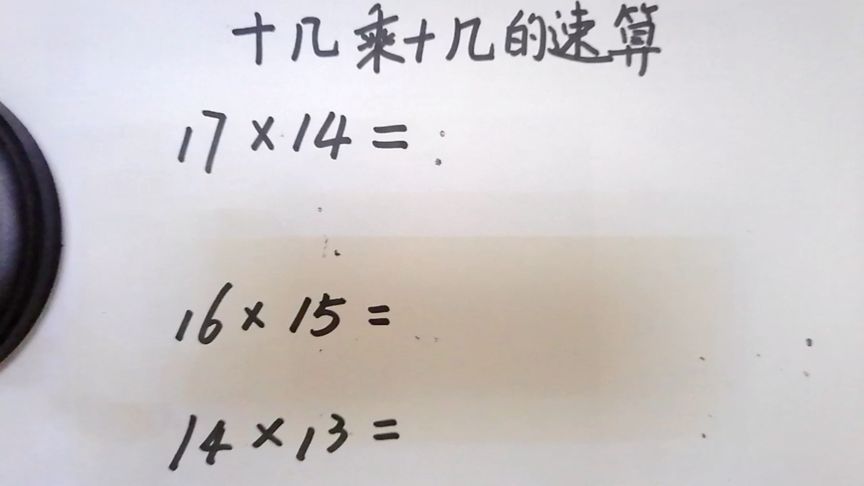 十几乘十几的速算
17×14=
16×15=
14×13=